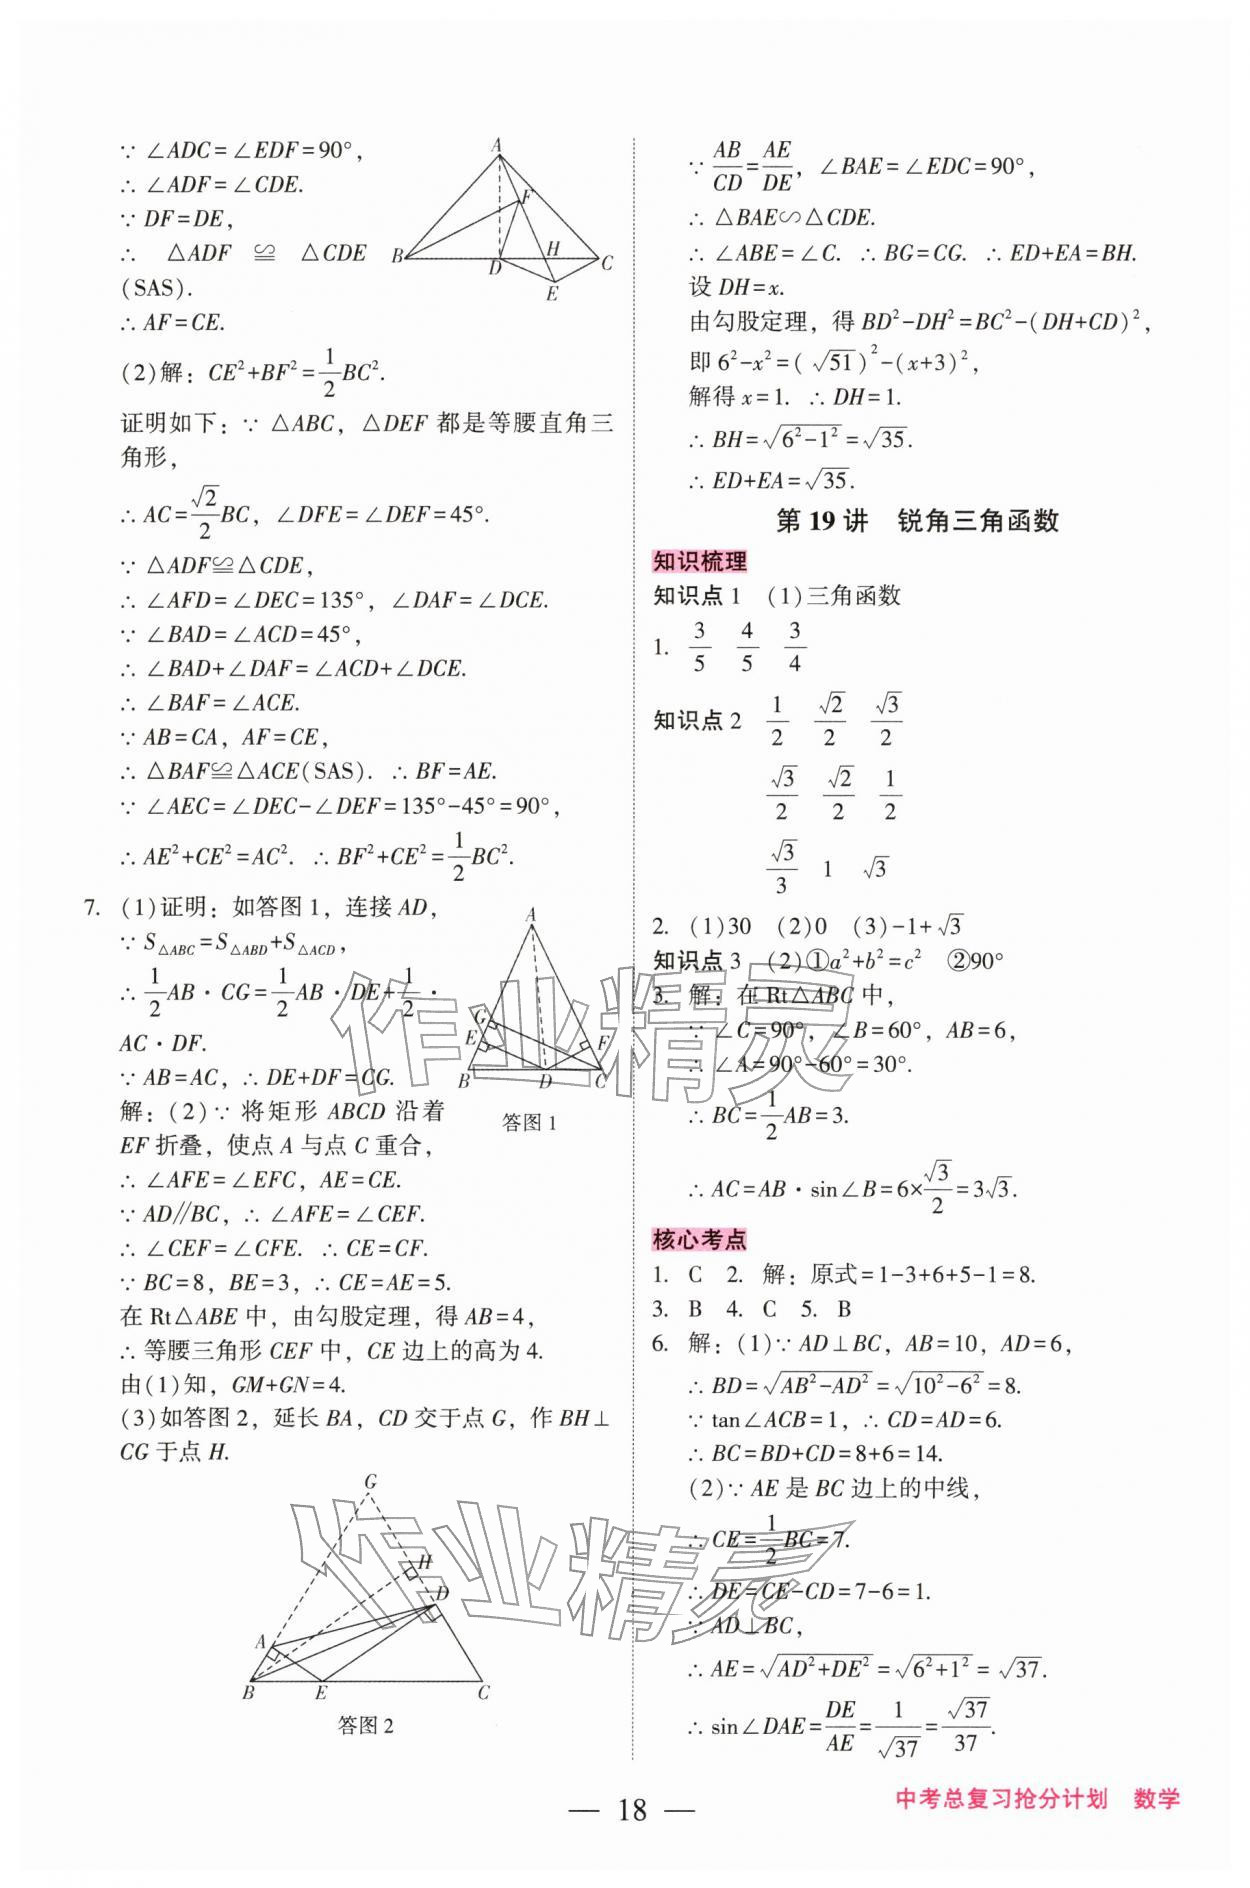 ∵ ∠ADC=∠EDF=90°,
∴ ∠ADF=∠CDE.
∵ DF=DE,
∴ △ADF ≌ △CDE
(SAS).
∴ AF=CE.
A
F
B
D
H
C
E
(2)解：CE²+BF²=1/2BC².
证明如下：∵ △ABC，△DEF 都是等腰直角三
角形，
∴ AC=√2/2BC，∠DFE=∠DEF=45°.
∵ △ADF≌△CDE，
∴ ∠AFD=∠DEC=135°，∠DAF=∠DCE.
∵ ∠BAD=∠ACD=45°，
∴ ∠BAD+∠DAF=∠ACD+∠DCE.
∴ ∠BAF=∠ACE.
∵ AB=CA，AF=CE，
∴ △BAF≌△ACE(SAS). ∴ BF=AE.
∵ ∠AEC=∠DEC-∠DEF=135°-45°=90°，
∴ AE²+CE²=AC². ∴ BF²+CE²=1/2BC².
7. (1)证明：如答图 1，连接 AD，
∵ S△ABC=S△ABD+S△ACD，
∴ 1/2AB·CG=1/2AB·DE+1/2·
AC·DF.
∵ AB=AC，∴ DE+DF=CG.
A
G
E
F
B
D
C
答图 1
解：(2)∵ 将矩形 ABCD 沿着
EF 折叠，使点 A 与点 C 重合，
∴ ∠AFE=∠EFC，AE=CE.
∵ AD∥BC，∴ ∠AFE=∠CEF.
∴ ∠CEF=∠CFE. ∴ CE=CF.
∵ BC=8，BE=3，∴ CE=AE=5.
在 Rt△ABE 中，由勾股定理，得 AB=4，
∴ 等腰三角形 CEF 中，CE 边上的高为 4.
由(1)知，GM+GN=4.
(3)如答图 2，延长 BA，CD 交于点 G，作 BH⊥
CG 于点 H.
G
H
D
A
B
E
C
答图 2
∵ AB/CD=AE/DE，∠BAE=∠EDC=90°，
∴ △BAE∽△CDE.
∴ ∠ABE=∠C. ∴ BG=CG. ∴ ED+EA=BH.
设 DH=x.
由勾股定理，得 BD²-DH²=BC²-(DH+CD)²，
即 6²-x²=(√51)²-(x+3)²，
解得 x=1. ∴ DH=1.
∴ BH=√(6²-1²)=√35.
∴ ED+EA=√35.
第 19 讲 锐角三角函数
知识梳理
知识点 1 (1)三角函数
1. 3/5 4/5 3/4
知识点 2 1/2 √2/2 √3/2
√3/2 √2/2 1/2
√3/3 1 √3
2. (1)30 (2)0 (3)-1+√3
知识点 3 (2)①a²+b²=c² ②90°
3. 解：在 Rt△ABC 中，
∵ ∠C=90°，∠B=60°，AB=6，
∴ ∠A=90°-60°=30°.
∴ BC=1/2AB=3.
∴ AC=AB·sin∠B=6×√3/2=3√3.
核心考点
1. C 2. 解：原式=1-3+6+5-1=8.
3. B 4. C 5. B
6. 解：(1)∵ AD⊥BC，AB=10，AD=6，
∴ BD=√(AB²-AD²)=√(10²-6²)=8.
∵ tan∠ACB=1，∴ CD=AD=6.
∴ BC=BD+CD=8+6=14.
(2)∵ AE 是 BC 边上的中线，
∴ CE=1/2BC=7.
∴ DE=CE-CD=7-6=1.
∵ AD⊥BC，
∴ AE=√(AD²+DE²)=√(6²+1²)=√37.
∴ sin∠DAE=DE/AE=1/√37=√37/37.
作业精灵
作业精灵
— 18 —
中考总复习抢分计划 数学